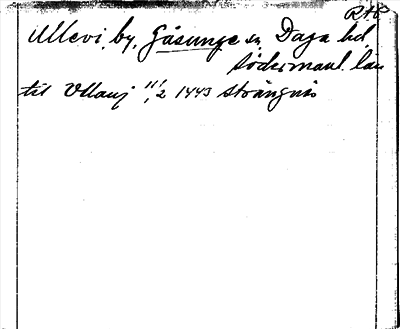 RAP
Ullevi by, Gåsinge sn Daga hd
Södermanl. län
til Vllauj 11/2 1443 Strängnäs